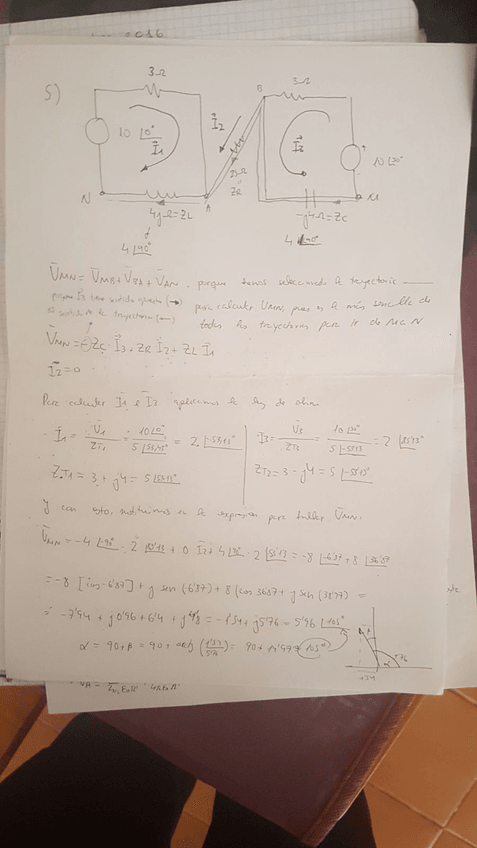 2016
5)
3Ω
B
3Ω
10 |0°
I1
I2
I3
10 |30°
N
A
ZR
M
4jΩ=ZL
-j4Ω=ZC
4 |90°
4 |-90°
ŪMN = ŪMB + ŪBA + ŪAN, porque hemos seleccionado la trayectoria
para calcular UMN, pues es la más sencilla de
todas las trayectorias para ir de M a N
ŪMN = (-)ZC · I3 + ZR I2 + ZL · I1
I2 = 0
Para calcular I1 e I3 aplicamos la ley de ohm
I1 = U1/ZT1 = 10|0°/5|53'13° = 2 |-53'13°
I3 = U3/ZT3 = 10|30°/5|-53'13° = 2 |83'13°
ZT1 = 3 + j4 = 5 |53'13°
ZT2 = 3 - j4 = 5 |-53'13°
Y con esto, sustituimos en la expresión para hallar ŪMN.
ŪMN = -4 |-90° · 2 |83'13° + 0 I2 + 4 |90° · 2 |-53'13 = -8 |-6'87 + 8 |36'87
= -8 [cos -6'87] + j sen (-6'87) + 8 (cos 36'87 + j sen (36'87) =
= -7'94 + j0'96 + 6'4 + j4'8 = -1'54 + j5'76 = 5'96 |105°
α = 90 + β = 90 + arctg (1'54/5'76) = 90 + 14'97 = 105°
β
α
5'76
-1'54